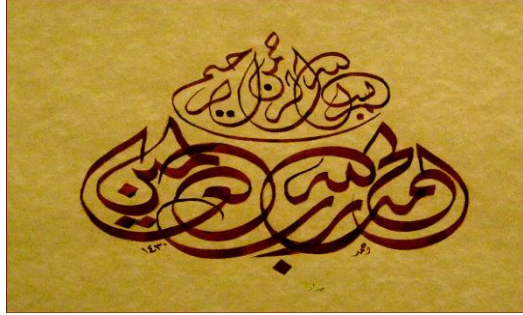 بسم الله الرحمن الرحيم
الحمد لله رب العالمين
١٤٣٠